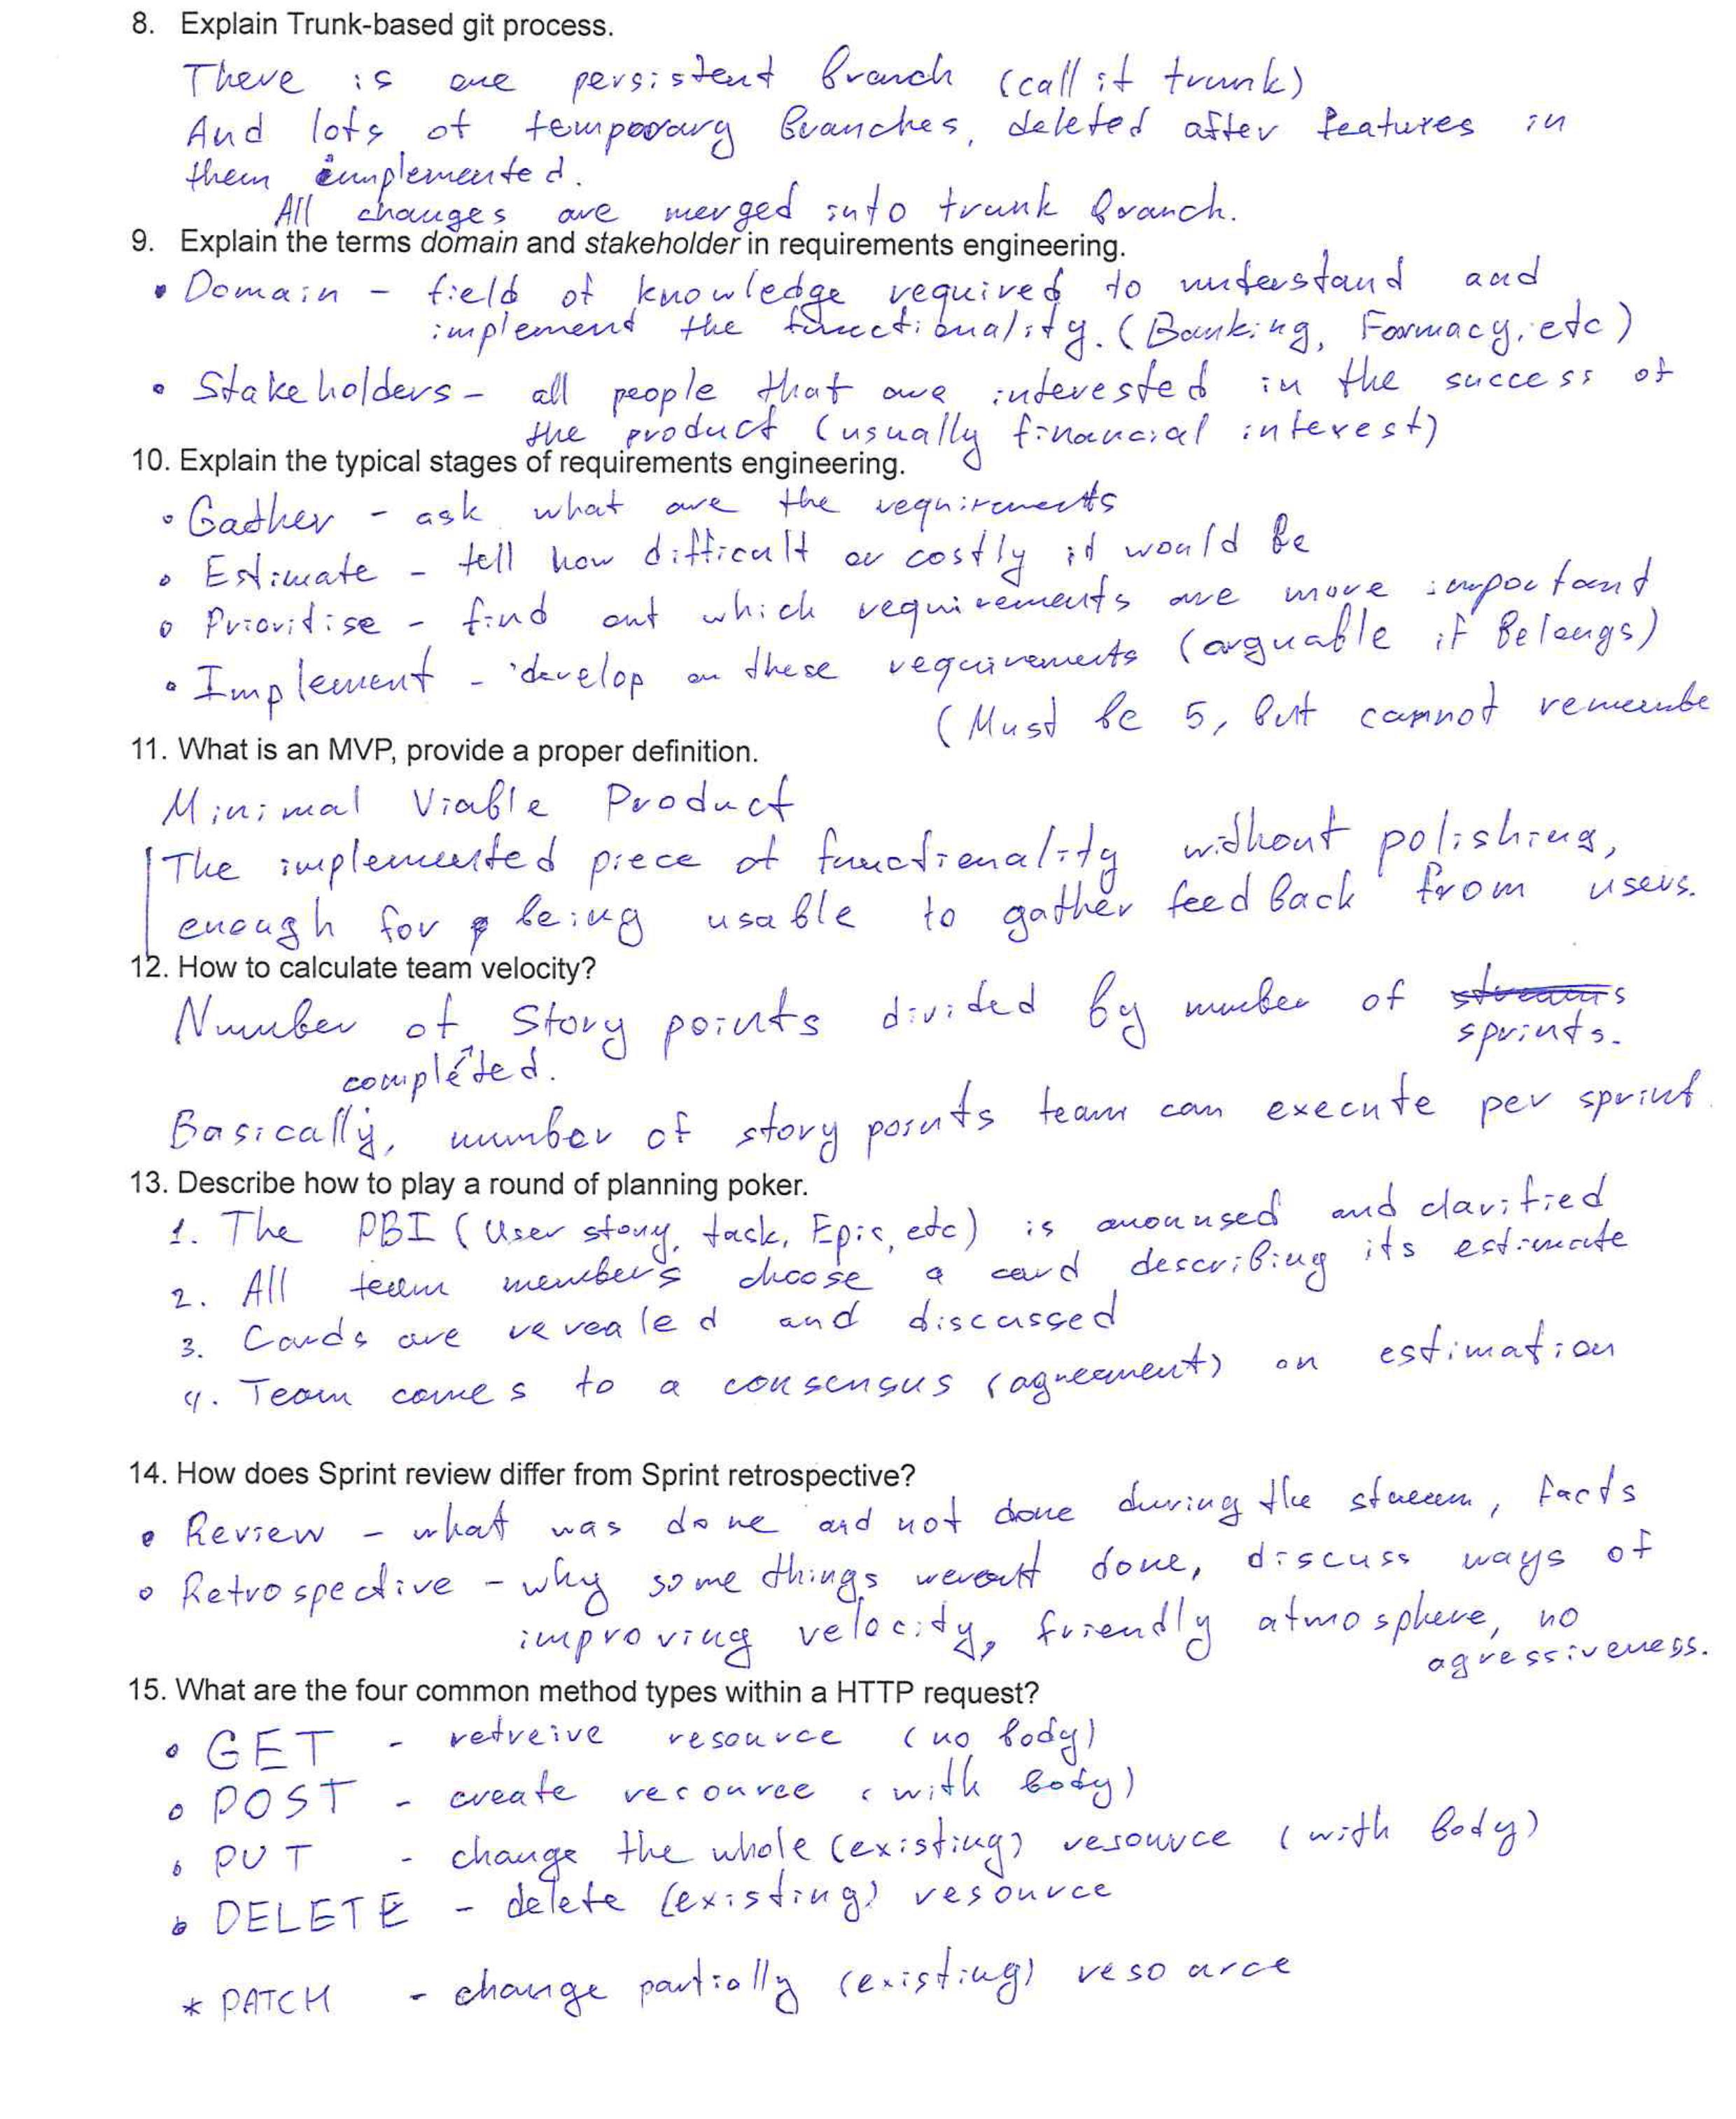 8. Explain Trunk-based git process.
There is one persistent branch (call it trunk)
And lots of temporary branches, deleted after features in
them implemented.
All changes are merged into trunk branch.
9. Explain the terms domain and stakeholder in requirements engineering.
• Domain - field of knowledge required to understand and
implement the functionality. (Banking, Farmacy, etc)
• Stakeholders - all people that are interested in the success of
the product (usually financial interest)
10. Explain the typical stages of requirements engineering.
• Gather - ask what are the requirements
• Estimate - tell how difficult or costly it would be
• Prioritise - find out which requirements are more important
• Implement - develop on these requirements (arguable if belongs)
(Must be 5, but cannot remembe
11. What is an MVP, provide a proper definition.
Minimal Viable Product
The implemented piece of functionality without polishing,
enough for being usable to gather feedback from users.
12. How to calculate team velocity?
Number of story points divided by number of streams
sprints.
completed.
Basically, number of story points team can execute per sprint.
13. Describe how to play a round of planning poker.
1. The PBI (User story, task, Epic, etc) is anounsed and clarified
2. All team members choose a card describing its estimate
3. Cards are revealed and discussed
4. Team comes to a consensus (agreement) on estimation
14. How does Sprint review differ from Sprint retrospective?
• Review - what was done and not done during the stream, facts
• Retrospective - why some things weren't done, discuss ways of
improving velocity, friendly atmosphere, no
agressiveness.
15. What are the four common method types within a HTTP request?
• GET - retreive resource (no body)
• POST - create resource (with body)
• PUT - change the whole (existing) resource (with body)
• DELETE - delete (existing) resource
* PATCH - change partially (existing) resource